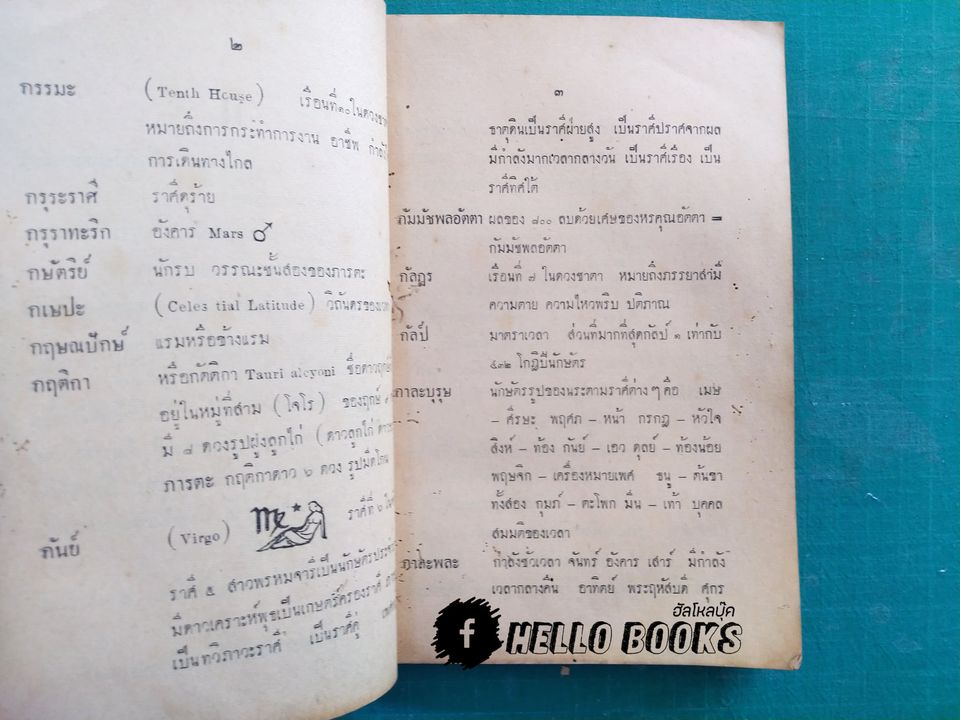 ๒
กรรมะ (Tenth House) เรือนที่๑๐ในดวงชาตา
หมายถึงการกระทำการงาน อาชีพ
การเดินทางไกล
กรุระราศี ราศีดุร้าย
กรุราทะริก อังคาร Mars ♂
กษัตริย์ นักรบ วรรณะชั้นสองของภารตะ
กเษปะ (Celes tial Latitude) วิถันดรของ
กฤษณปักษ์ แรมหรือข้างแรม
กฤติกา หรือกัตติกา Tauri alcyoni ชื่อดาวฤกษ์
อยู่ในหมู่ที่สาม (โจโร) ของฤกษ์
มี ๘ ดวงรูปฝูงลูกไก่ (ดาวลูกไก่
ภารตะ กฤติกาดาว ๖ ดวง รูปมีดโกน
กันย์ (Virgo) ราศีที่ ๖
ราศี ๕ สาวพรหมจารีเป็นนักษัตร
มีดาวเคราะห์พุธเป็นเกษตร์ครองราศี
เป็นทวิภาวะราศี เป็นราศีคู่
๓
ธาตุดินเป็นราศีฝ่ายสูง เป็นราศีปราศจากผล
มีกำลังมากเวลากลางวัน เป็นราศีเรื่อง เป็น
ราศีทิศใต้
กัมมัชพลอัตตา ผลของ ๘๐๐ ลบด้วยเศษของหรคุณอัตตา =
กัมมัชพลอัตตา
กัลฎร เรือนที่ ๗ ในดวงชาตา หมายถึงภรรยาสามี
ความตาย ความไหวพริบ ปติภาณ
กัลป์ มาตราเวลา ส่วนที่มากที่สุดกัลป์ ๑ เท่ากับ
๔๓๒ โกฏิปีนักษัตร
กาละบุรุษ นักษัตรรูปของนระตามราศีต่าง ๆ คือ เมษ
- ศีรษะ พฤศภ - หน้า กรกฎ - หัวใจ
สิงห์ - ท้อง กันย์ - เอว ตุลย์ - ท้องน้อย
พฤษจิก - เครื่องหมายเพศ ธนู - ต้นขา
ทั้งสอง กุมภ์ - ตะโพก มีน - เท้า บุคคล
สมมติของเวลา
กาละพละ กำลังชั่วเวลา จันทร์ อังคาร เสาร์ มีกำลัง
เวลากลางคืน อาทิตย์ พระฤหัสบดี ศุกร
ฮัลโหลบุ๊ค
f HELLO BOOKS